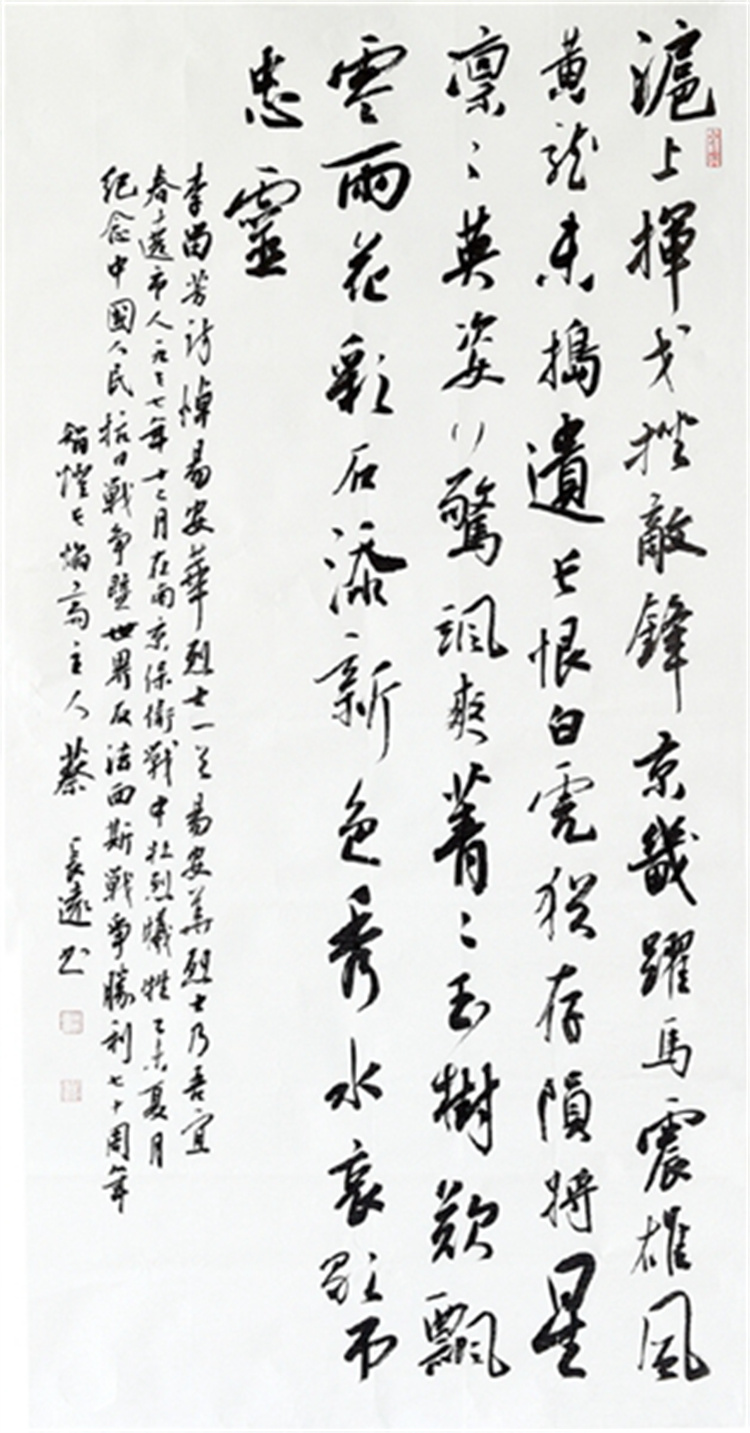 滬上揮戈挫敵鋒京畿躍馬震雄風
黃龍未搗遺長恨白虎猶存隕將星
凜〻英姿驚颯爽菁〻玉樹嘆飄
零雨花彩石添新色秀水哀歌弔
忠靈
李芳詩悼易安華烈士一首易安華烈士乃吾宜
春市人一九三七年十二月在南京保衛戰中壯烈犧牲乙未夏月
紀念中國人民抗日戰争暨世界反法西斯戰争勝利七十周年
智燈長焰齋主人蔡長遠书